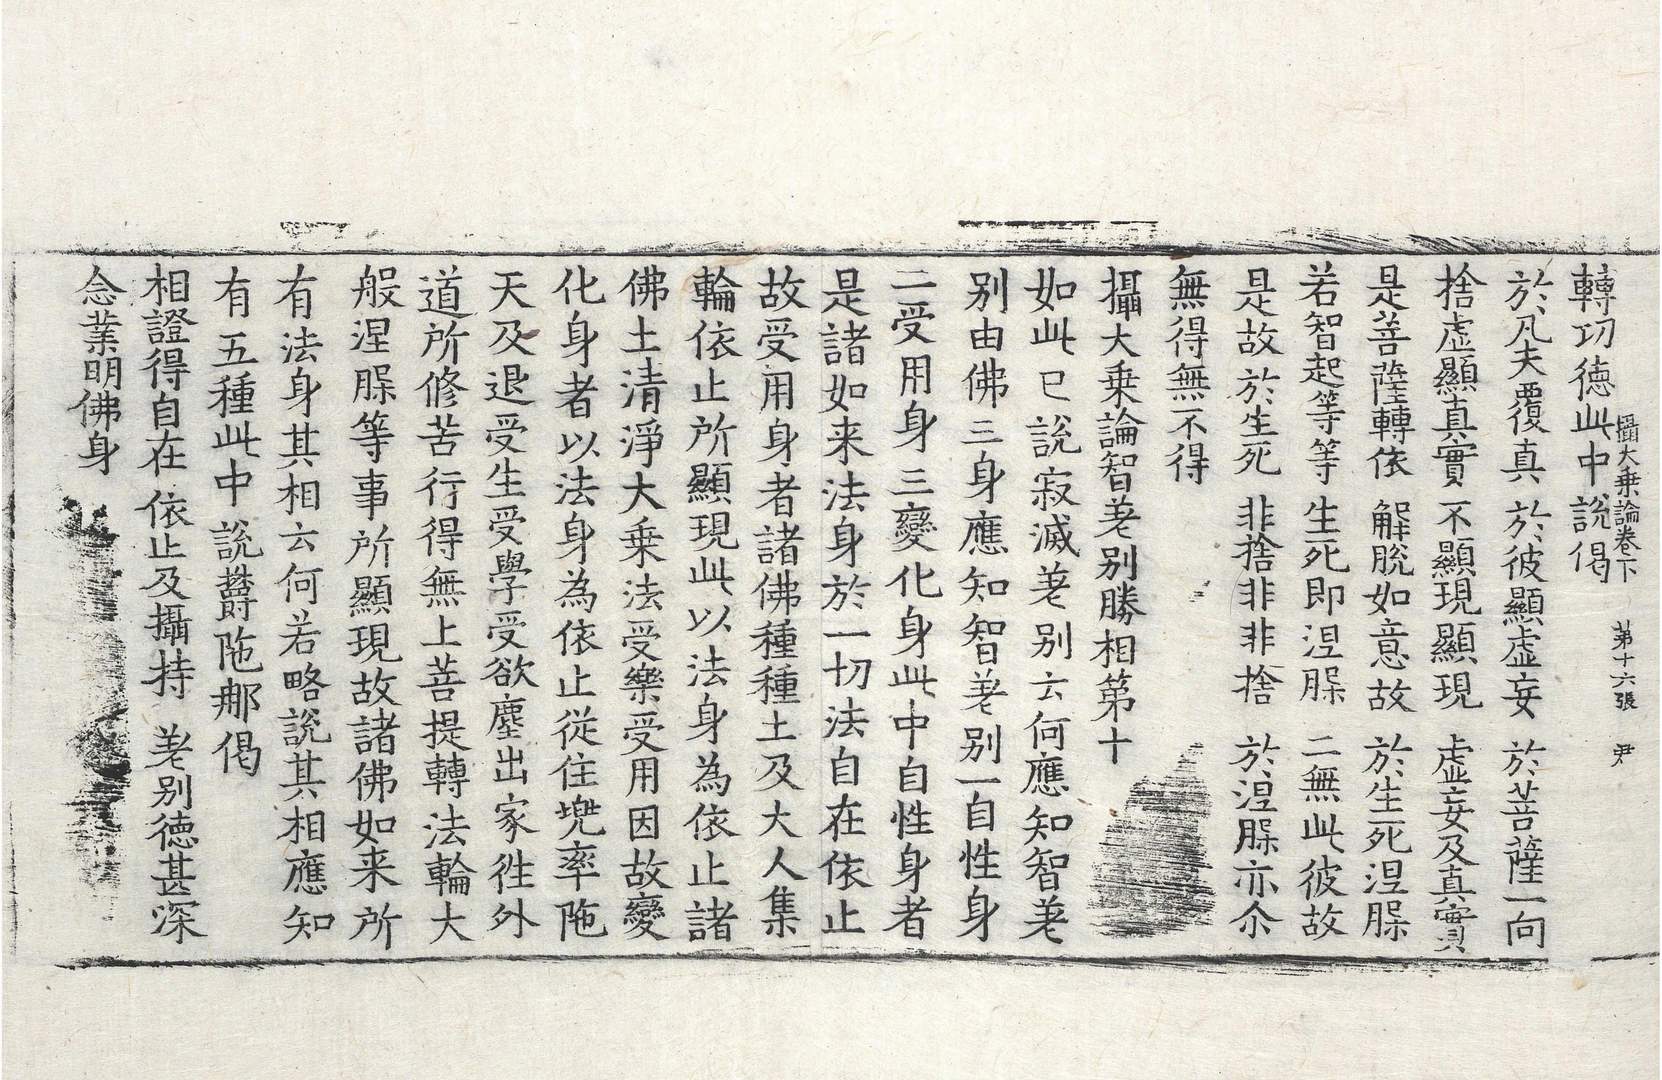 攝大乗論卷下　第十六張　尹
轉功德此中說偈
於凡夫覆真　於彼顯虛妄　於菩薩一向
捨虛顯真實　不顯現顯現　虛妄及真實
是菩薩轉依　解脫如意故　於生死涅槃
若智起等等　生死即涅槃　二無此彼故
是故於生死　非捨非非捨　於涅槃亦尒
無得無不得
攝大乘論智差別勝相第十
如此已說寂滅差別云何應知智差
別由佛三身應知智差別一自性身
二受用身三變化身此中自性身者
是諸如来法身於一切法自在依止
故受用身者諸佛種種土及大人集
輪依止所顯現此以法身為依止諸
佛土清淨大乗法受樂受用因故變
化身者以法身為依止從住兠率陁
天及退受生受學受欲塵出家徃外
道所修苦行得無上菩提轉法輪大
般涅槃等事所顯現故諸佛如来所
有法身其相云何若略說其相應知
有五種此中說欝陁那偈
相證得自在　依止及攝持　差別德甚深
念業明佛身